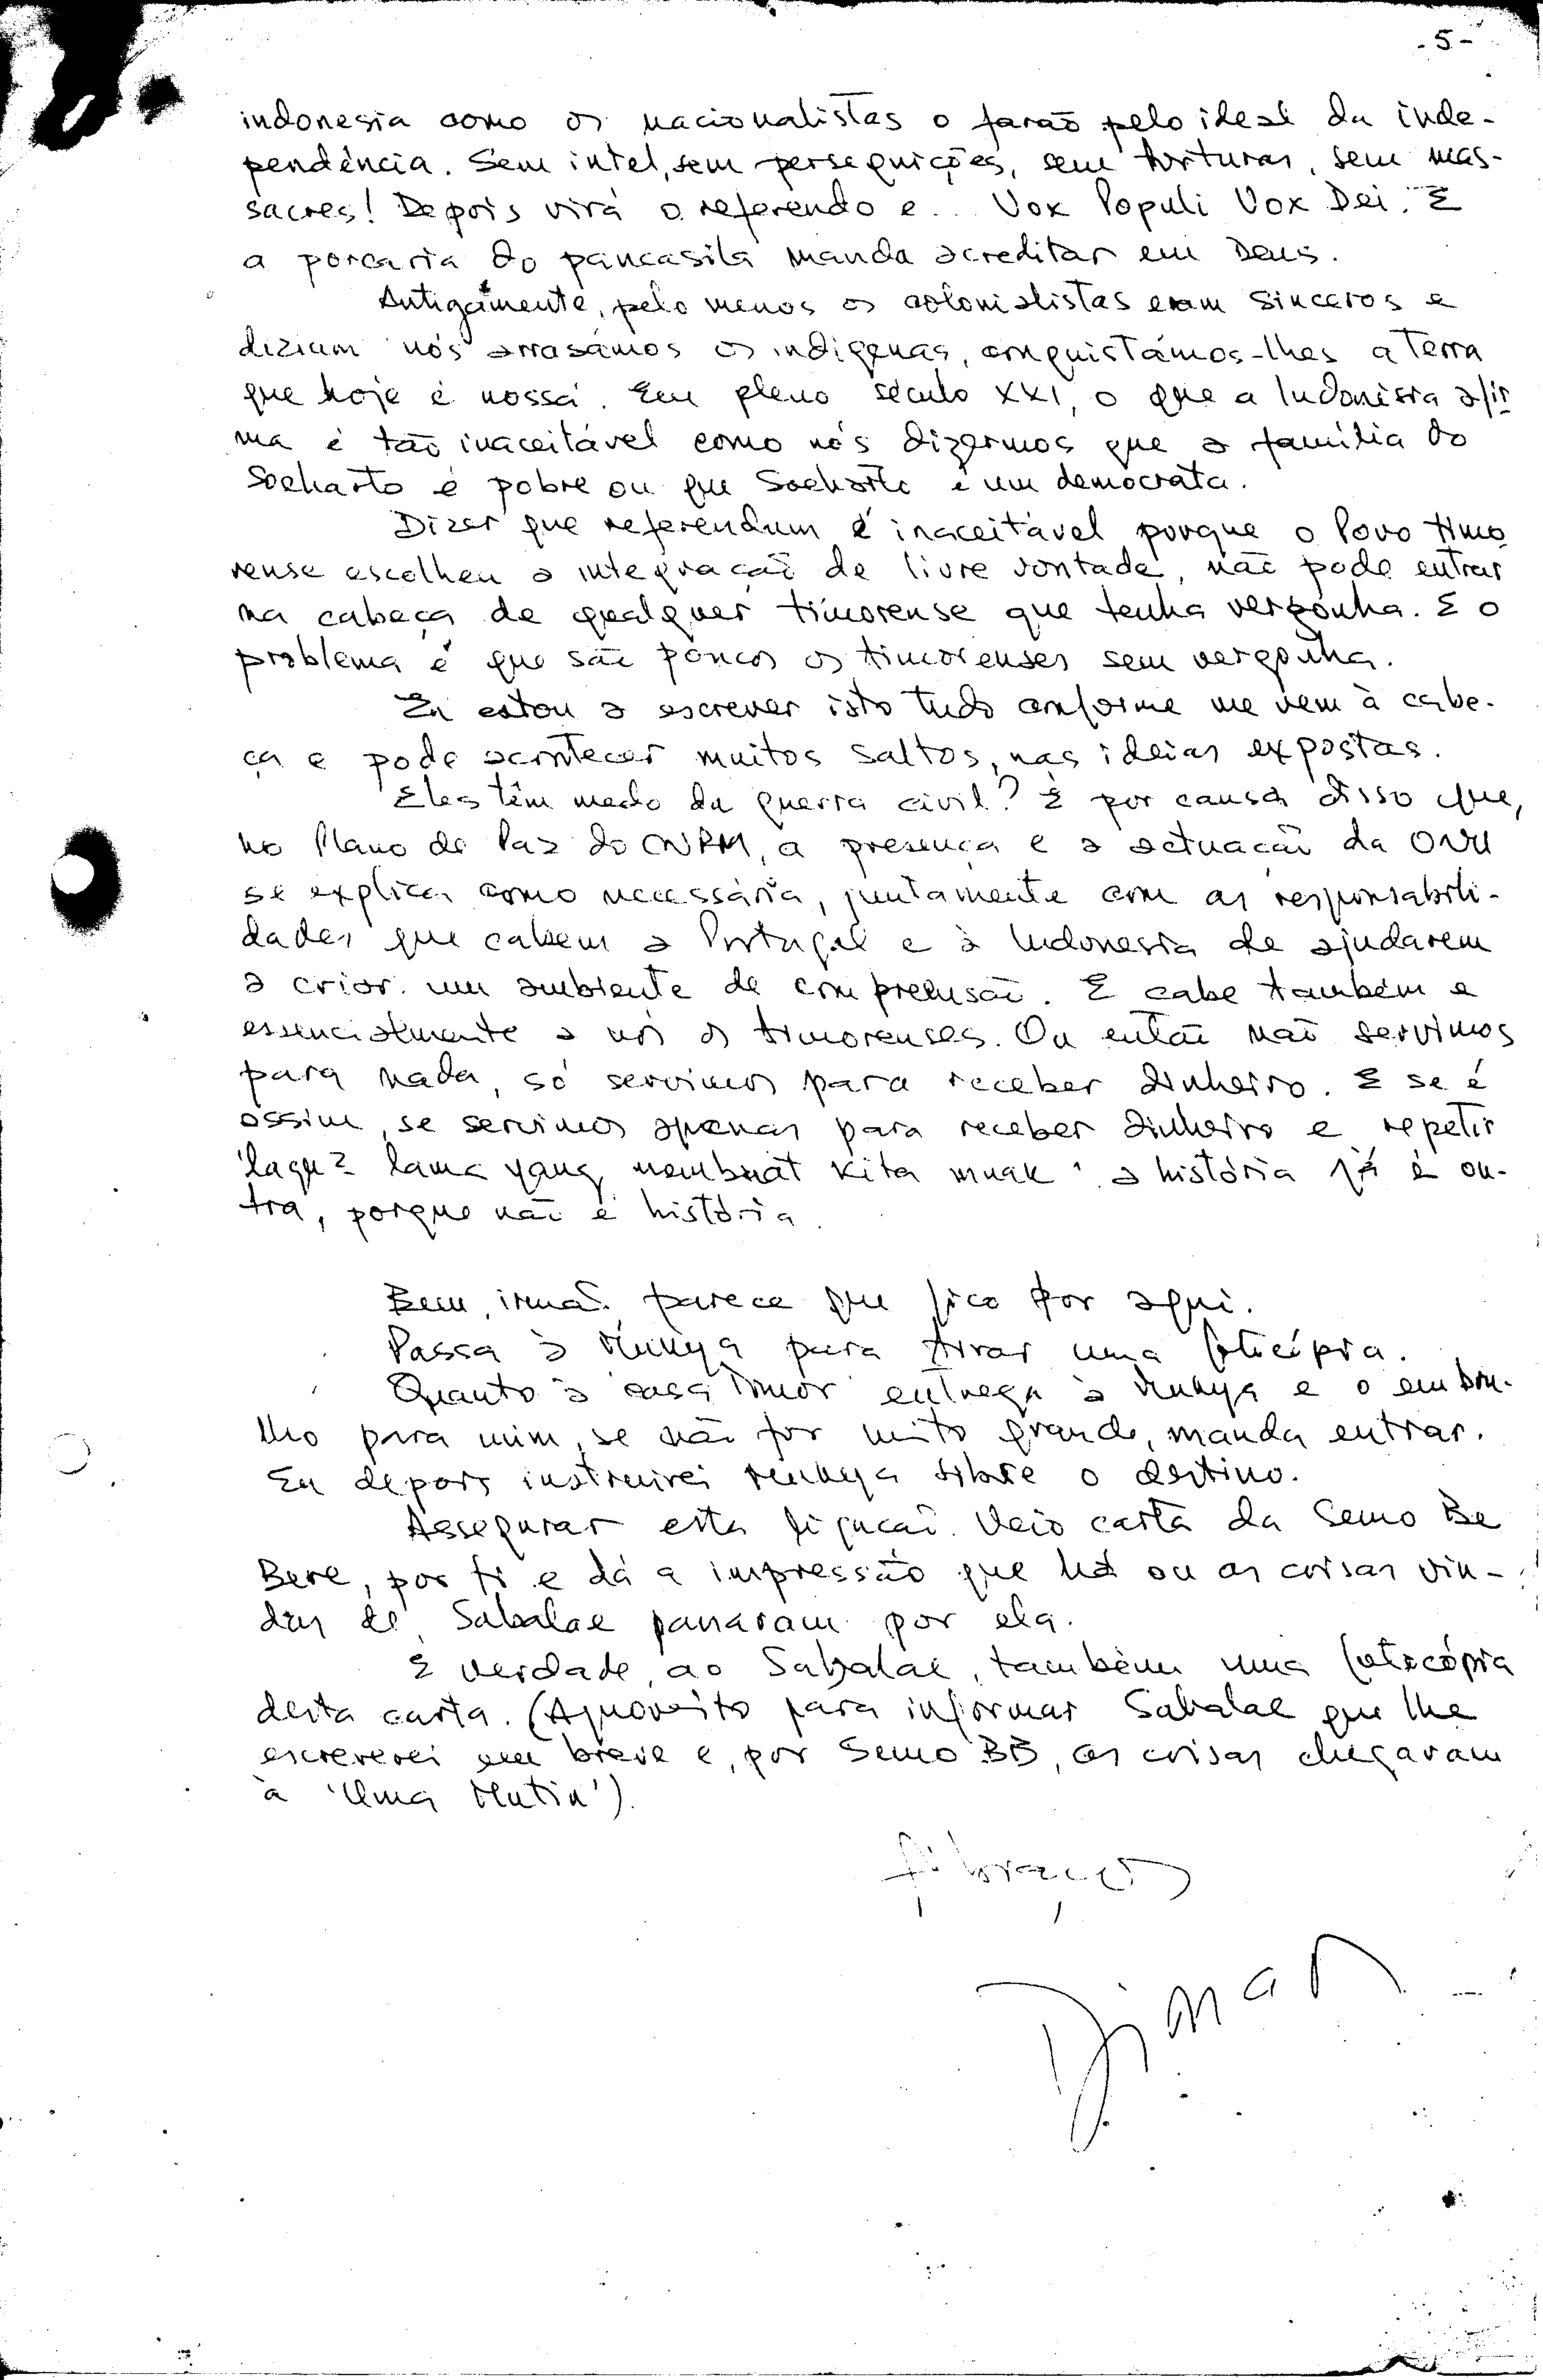 - 5 -
indonesia como os nacionalistas o farão pelo ideal da inde-
pendência. Sem intel, sem perseguições, sem torturas, sem mas-
sacres! Depois virá o referendo e... Vox Populi Vox Dei. E
a porcaria do pancasila manda acreditar em Deus.
Antigamente, pelo menos os colonialistas eram sinceros e
diziam nós arrasámos os indígenas, conquistámos-lhes a terra
que hoje é nossa. Em pleno século XXI, o que a Indonésia afir
ma é tão inaceitável como nós dizermos que a família do
Soeharto é pobre ou que Soeharto é um democrata.
Dizer que referendum é inaceitável porque o Povo timo
rense escolheu a integração de livre vontade, não pode entrar
na cabeça de qualquer timorense que tenha vergonha. E o
problema é que são poucos os timorenses sem vergonha.
Eu estou a escrever isto tudo conforme me vem à cabe-
ça e pode acontecer muitos saltos, nas ideias expostas.
Eles têm medo da guerra civil? É por causa disso que,
no Plano de Paz do CNRM, a presença e a actuação da ONU
se explica como necessária, juntamente com as responsabili-
dades que cabem a Portugal e à Indonesia de ajudarem
a criar um ambiente de compreensão. E cabe também e
essencialmente a nós os timorenses. Ou então não servimos
para nada, só servimos para receber dinheiro. E se é
assim, se servimos apenas para receber dinheiro e repetir
'lagu2 lama yang membuat kita muak' a história já é ou-
tra, porque não é história.
Bem, irmão, parece que fico por aqui.
Passa à para tirar uma fotocópia.
Quanto à casa Timor entrega à e o embru-
lho para mim, se não for muito grande, manda entrar.
Eu depois instruirei sobre o destino.
Assegurar esta ligação. Veio carta da Semo Be
Bere, por ti e dá a impressão que há ou as coisas vin-
das de Sabalae passaram por ela.
É verdade, ao Sabalae, também uma fotocópia
desta carta. (Aproveito para informar Sabalae que lhe
escreverei em breve e, por Semo BB, as coisas chegaram
à 'Uma Mutin').
Abraços